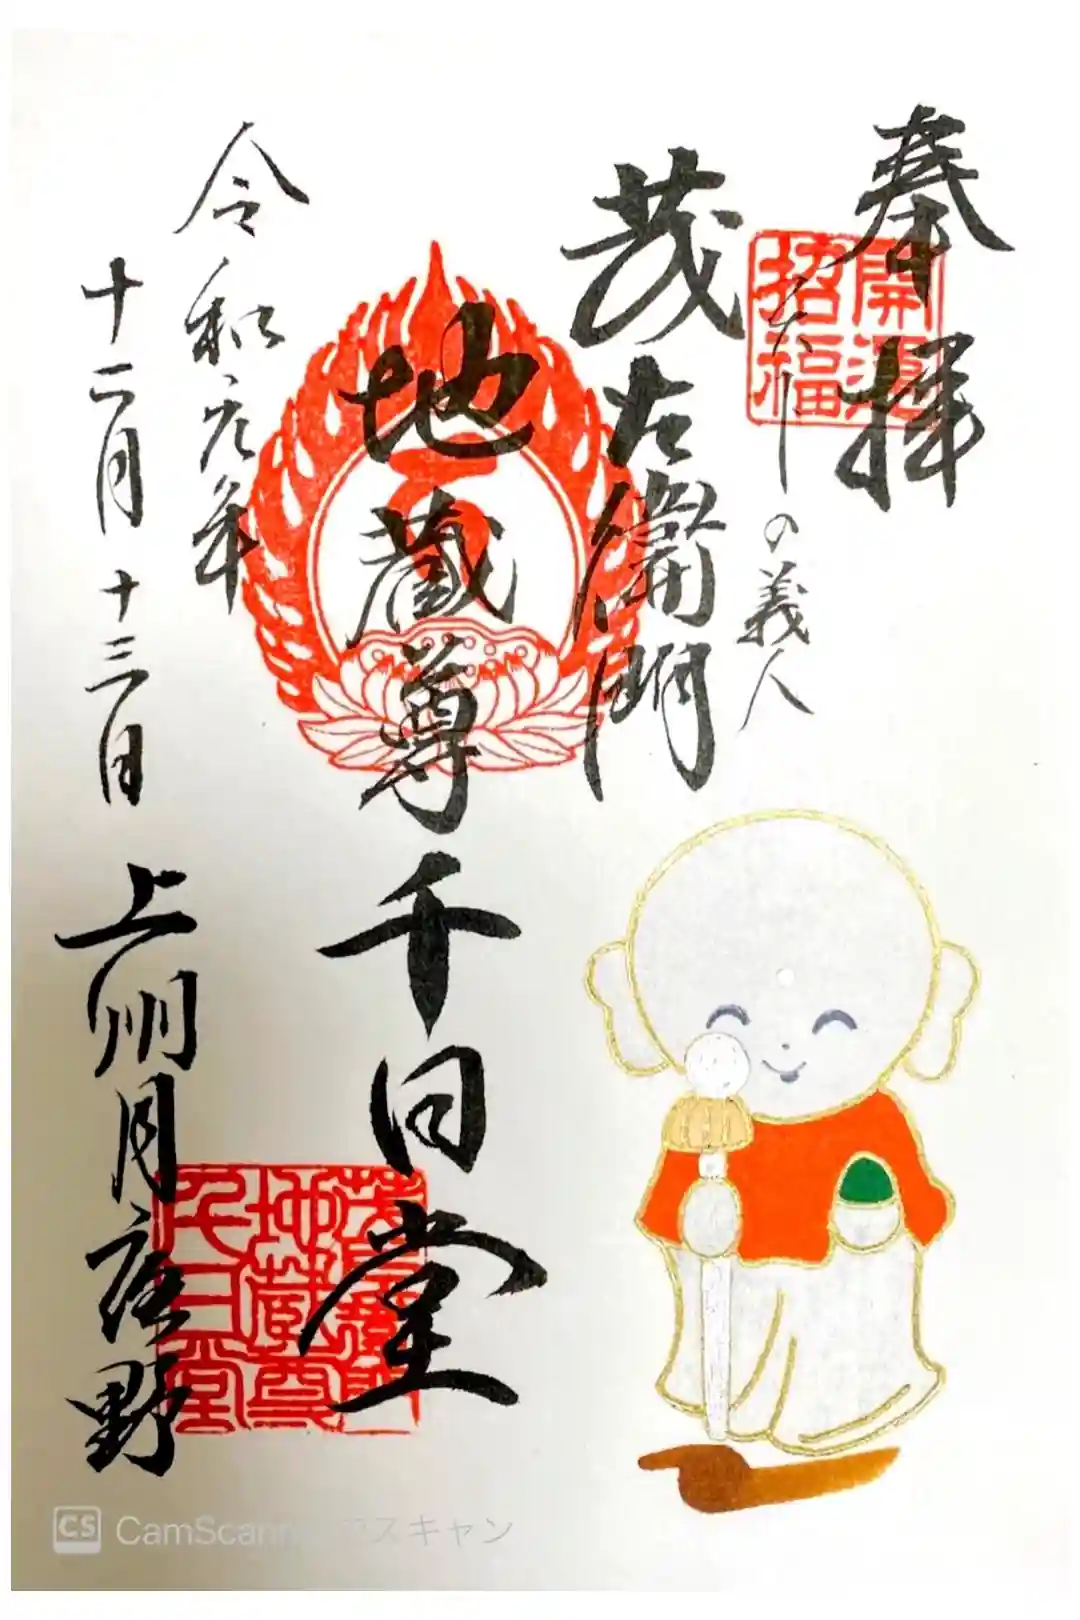 奉拝
開運
招福
天下一の義人
茂左衛門
地蔵尊千日堂
令和元年
十二月十三日
上州月夜野
茂左衛門
地蔵尊
千日堂
CS CamScanner でスキャン